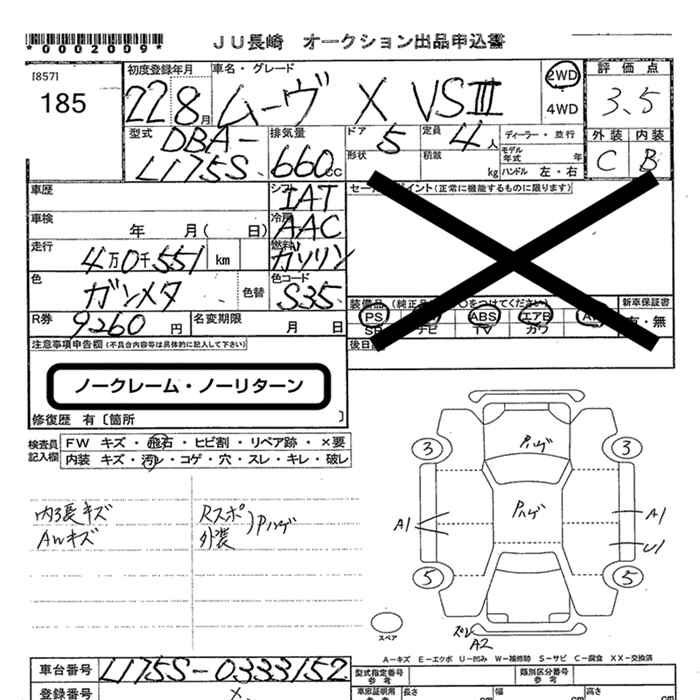 *0002009*
JU長崎 オークション出品申込書
[857]
185
初度登録年月
22 8月
車名・グレード
ムーヴ X VSⅢ
2WD
4WD
評価点
3.5
外装 内装
C B
型式
DBA-
L175S
排気量
660cc
ドア
5
形状
定員
4人
積載
kg
ディーラー・並行
モデル年式 年
ハンドル 左・右
車歴
シフト
IAT
車検
年 月( 日)
冷房
AAC
走行
4万0千551 km
燃料
ガソリン
色
ガンメタ
色替
色コード
S35
R券
9260円
名変期限
月 日
セールスポイント(正常に機能するものに限ります)
装備品 (純正品 ○をつけてください)
新車保証書
PS ABS エアB
SR ナビ TV カワ
有・無
後日
注意事項申告欄(不具合内容等は具体的に記入して下さい)
ノークレーム・ノーリターン
修復歴 有〔箇所 〕
検査員記入欄
FW キズ・飛石・ヒビ割・リペア跡・×要
内装 キズ・汚レ・コゲ・穴・スレ・キレ・破レ
内張キズ
AWキズ
Rスポ
外装
Pハゲ
Pハゲ
Pハゲ
3
3
A1
A1
U1
5
5
スペア
A2
A-キズ E-エクボ U-凹み W-補修跡 S-サビ C-腐食 XX-交換済
車台番号
L175S-0333152
登録番号
型式指定番号
参考
類別区分番号
参考
車庫証明用
参考
長さ
幅
高さ